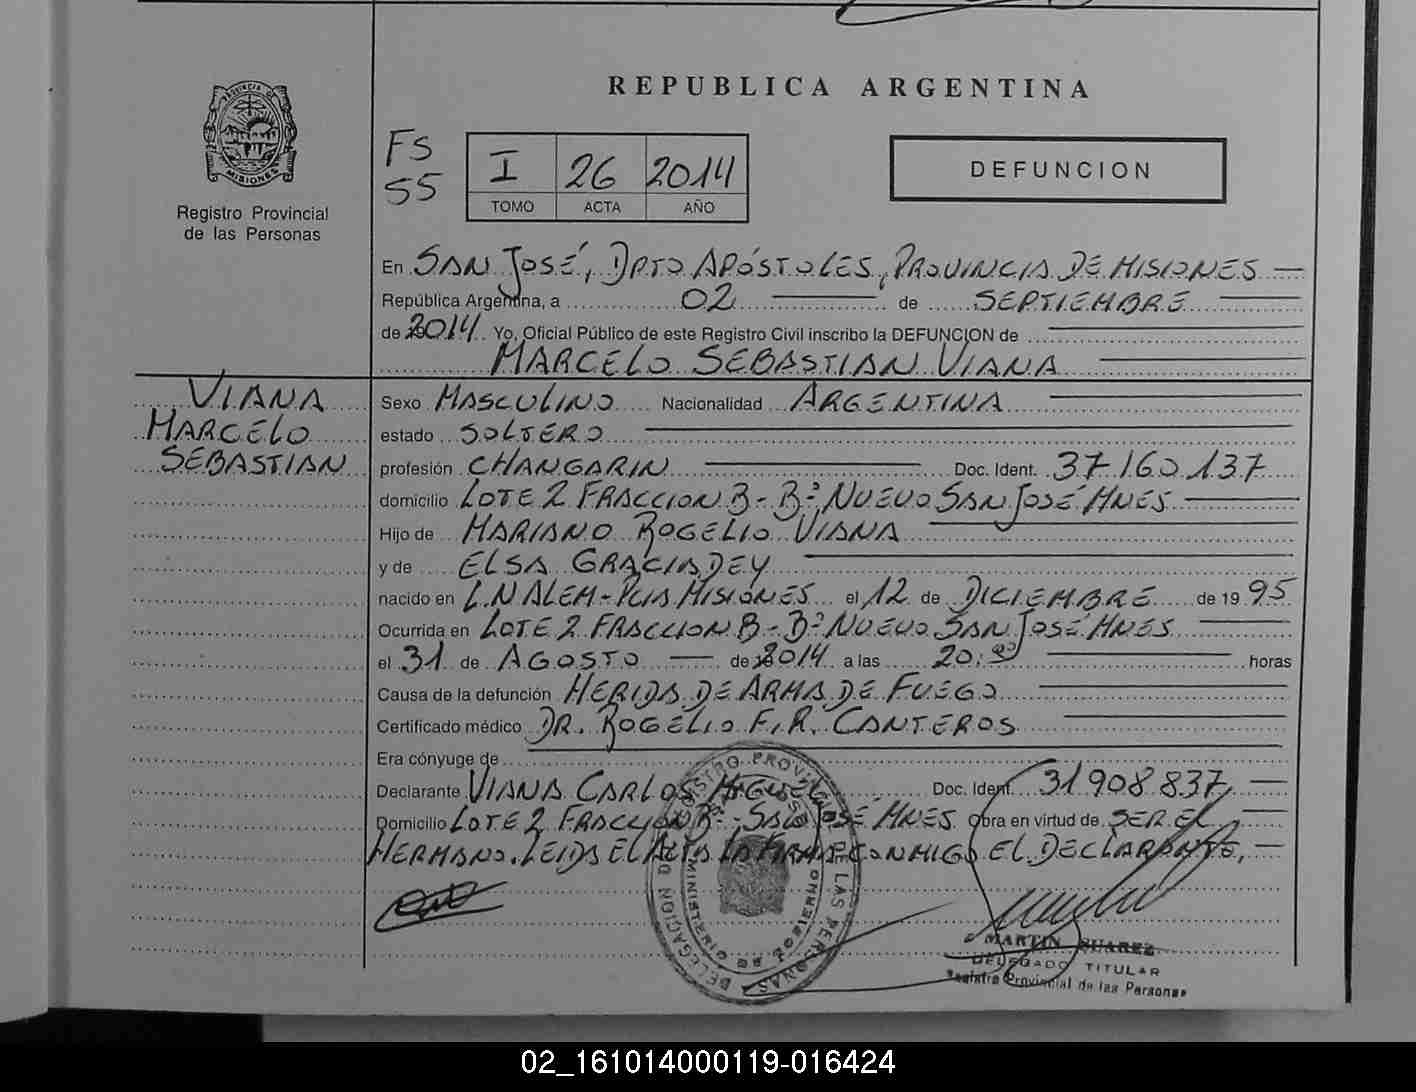 REPUBLICA ARGENTINA
PROVINCIA DE
MISIONES
Registro Provincial
de las Personas
FS
55
I 26 2014
TOMO ACTA AÑO
DEFUNCION
En SAN JOSÉ, DPTO APÓSTOLES, PROVINCIA DE MISIONES —
República Argentina, a 02 — de SEPTIEMBRE —
de 2014 Yo, Oficial Público de este Registro Civil inscribo la DEFUNCION de
MARCELO SEBASTIAN VIANA —
VIANA
MARCELO
SEBASTIAN
Sexo MASCULINO Nacionalidad ARGENTINA —
estado SOLTERO —
profesión CHANGARIN — Doc. Ident. 37.160.137
domicilio LOTE 2 FRACCION B - Bº NUEVO SAN JOSÉ MNES —
Hijo de MARIANO ROGELIO VIANA —
y de ELSA GRACIA DEY —
nacido en L.N ALEM - PCIA MISIONES el 12 de DICIEMBRE de 19 95
Ocurrida en LOTE 2 FRACCION B - Bº NUEVO SAN JOSÉ MNES —
el 31 de AGOSTO — de 2014 a las 20: — horas
Causa de la defunción HERIDA DE ARMA DE FUEGO —
Certificado médico DR. ROGELIO F. R. CANTEROS —
Era cónyuge de —
Declarante VIANA CARLOS MIGUEL Doc. Ident. 31908837, —
Domicilio LOTE 2 FRACCION B - SAN JOSÉ MNES Obra en virtud de SER EL —
HERMANO. LEIDA EL ACTA LA FIRMA CONMIGO EL DECLARANTE, —
DELEGACION DE REGISTRO PROVINCIAL DE LAS PERSONAS
SAN JOSE
MINISTERIO DE GOBIERNO
MARTIN SUAREZ
DELEGADO TITULAR
Registro Provincial de las Personas
02_161014000119-016424